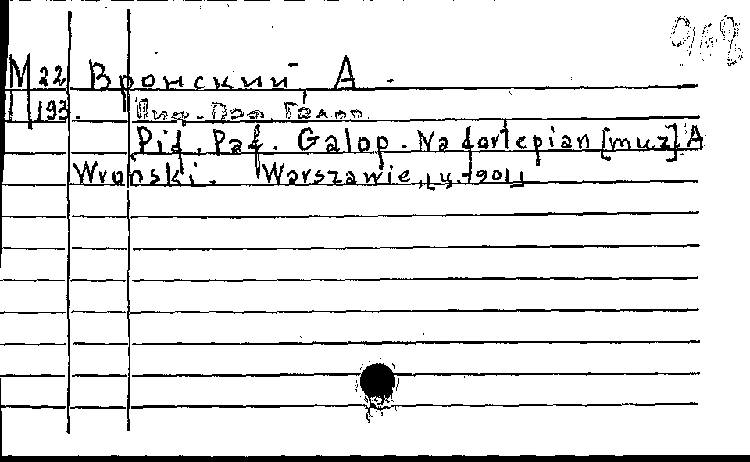 968
М 22 Вронский, А.
193.
Пиф. Паф. Галоп.
Pif. Paf. Galop. Na fortepian [muz.] A
Wroński. Warszawie,